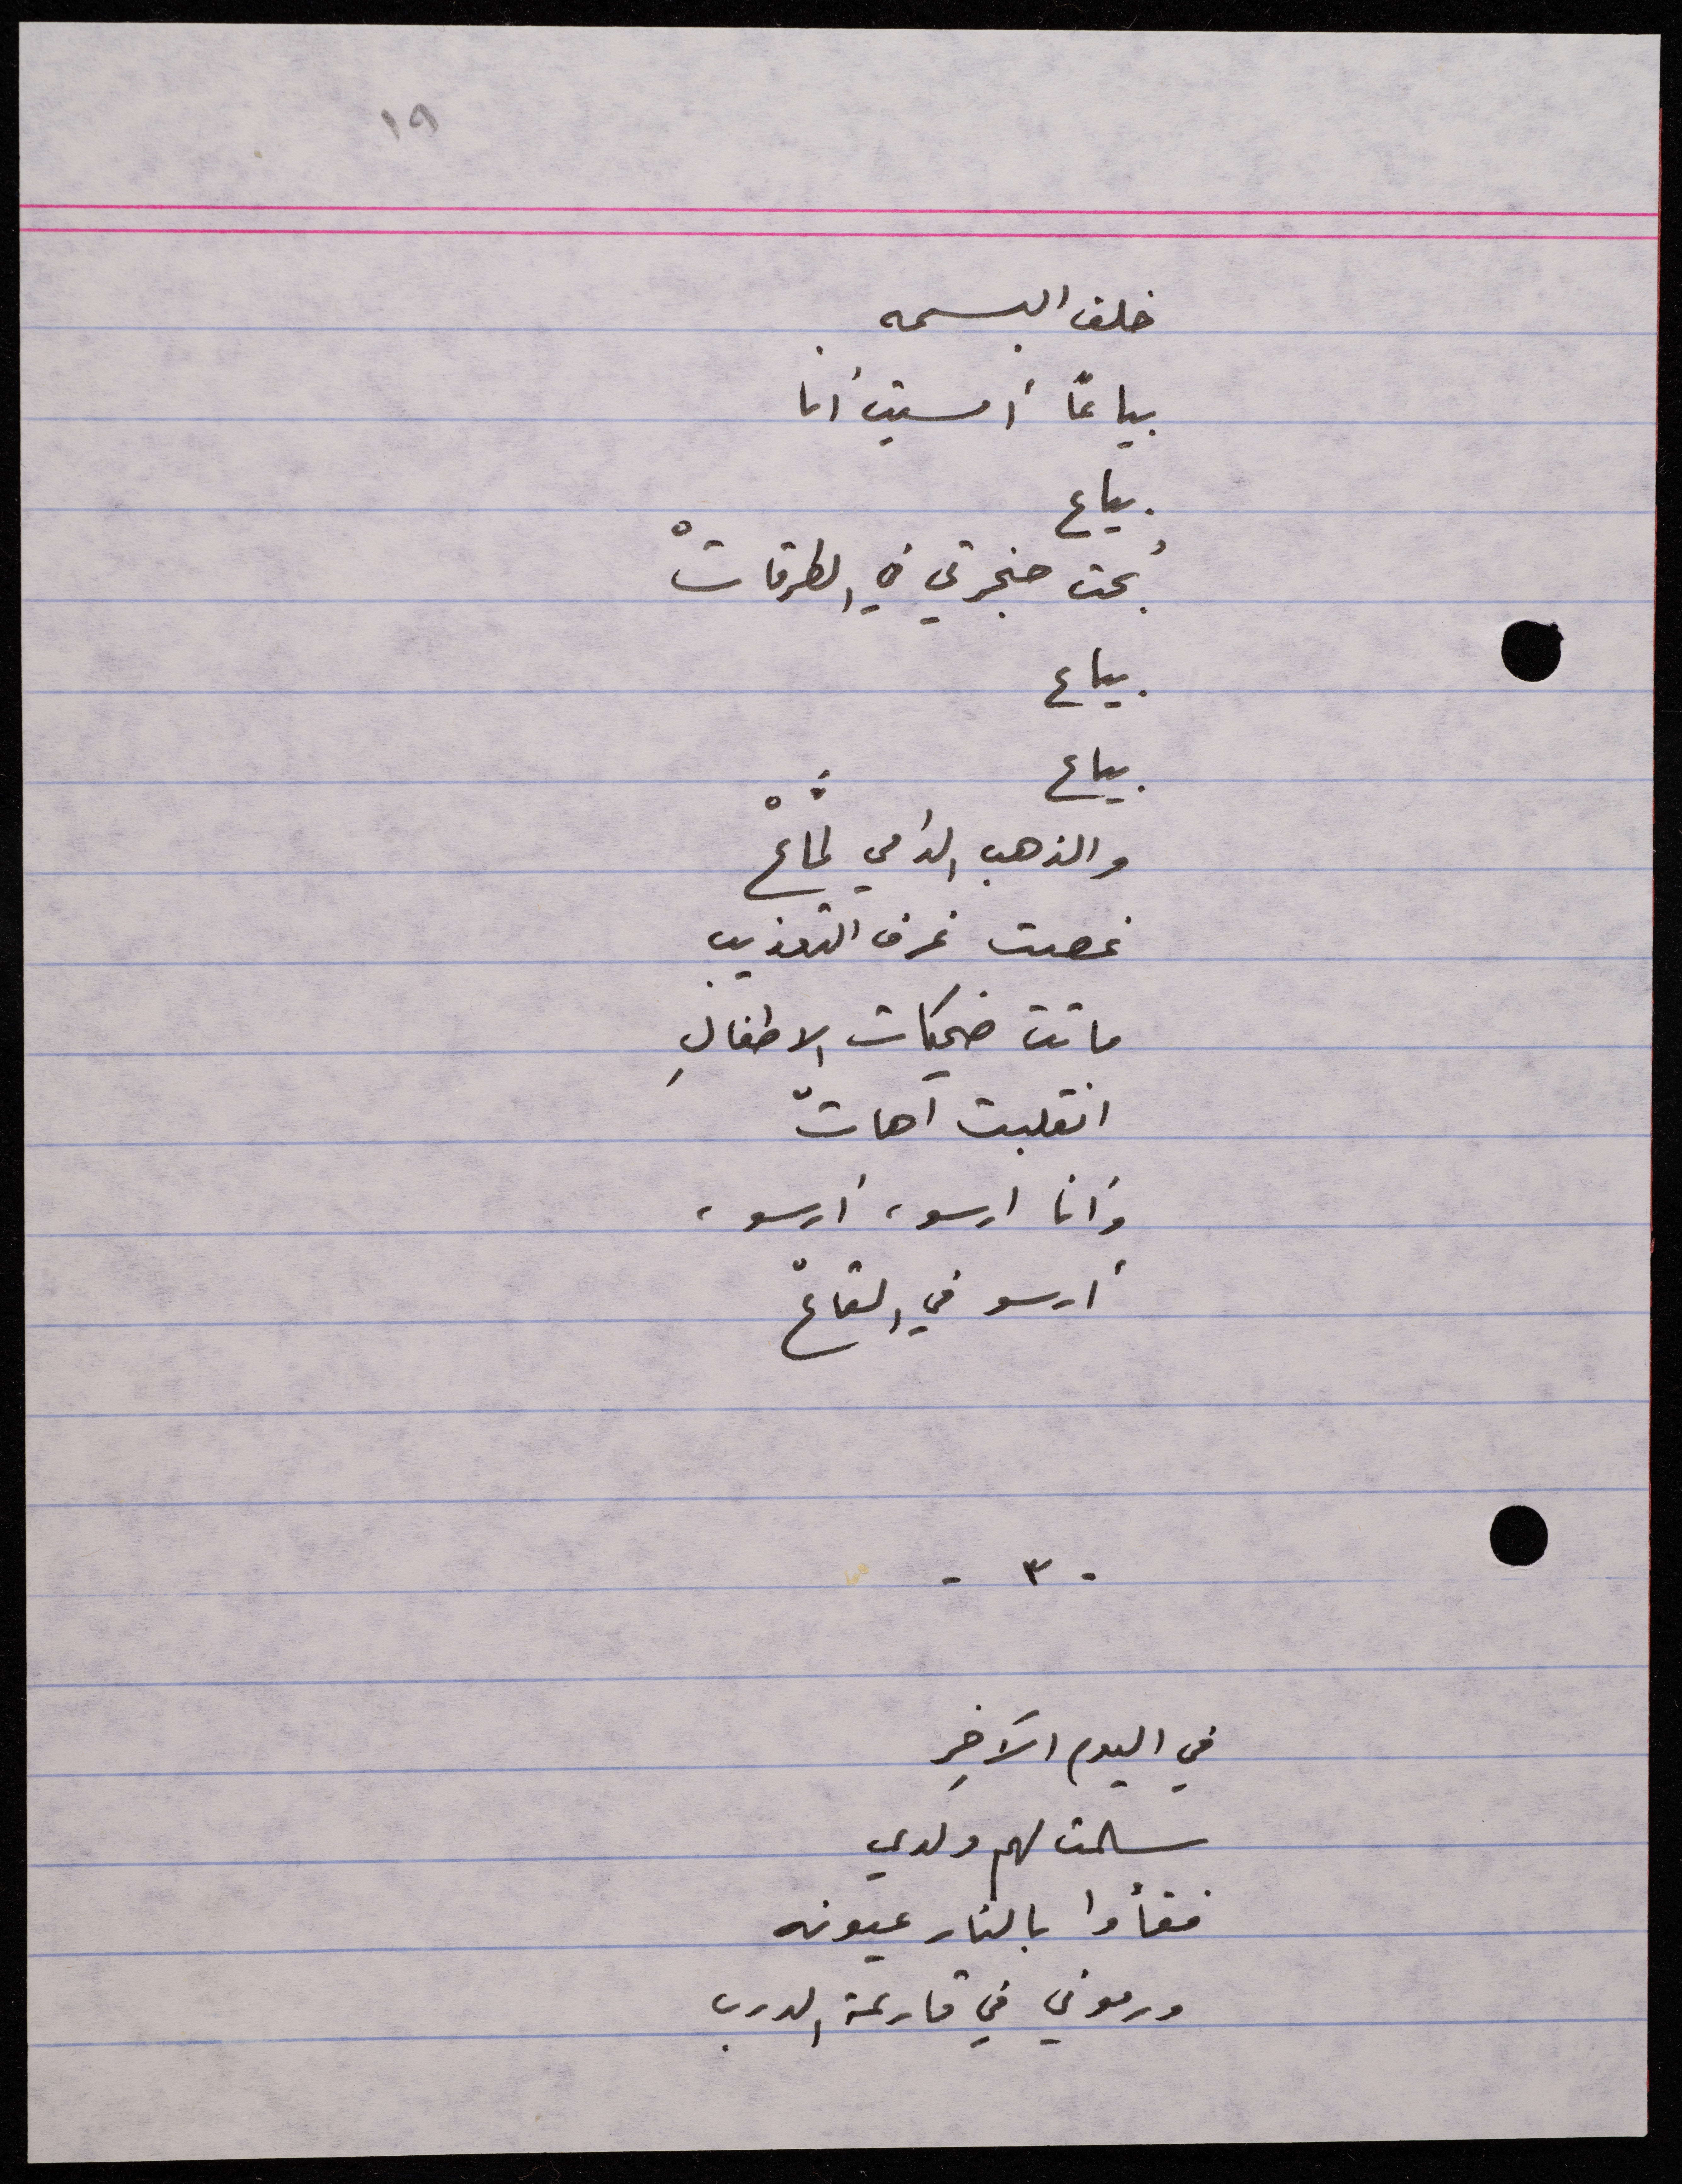 ١٩
خلف البسمه
بياعًا أمسيت أنا
بياع
بُحت حنجرتي في الطرقاتْ
بياع
بياع
والذهب الدامي لمّاعْ
غصت غرف التعذيب
ماتت ضحكات الاطفالِ
انقلبت آهاتْ
وأنا ارسو، أرسو،
أرسو في القاعْ
- ٣ -
في اليوم الآخِرِ
سلمت لهم ولدي
فقأوا بالنار عيونه
ورموني في قارعة الدرب